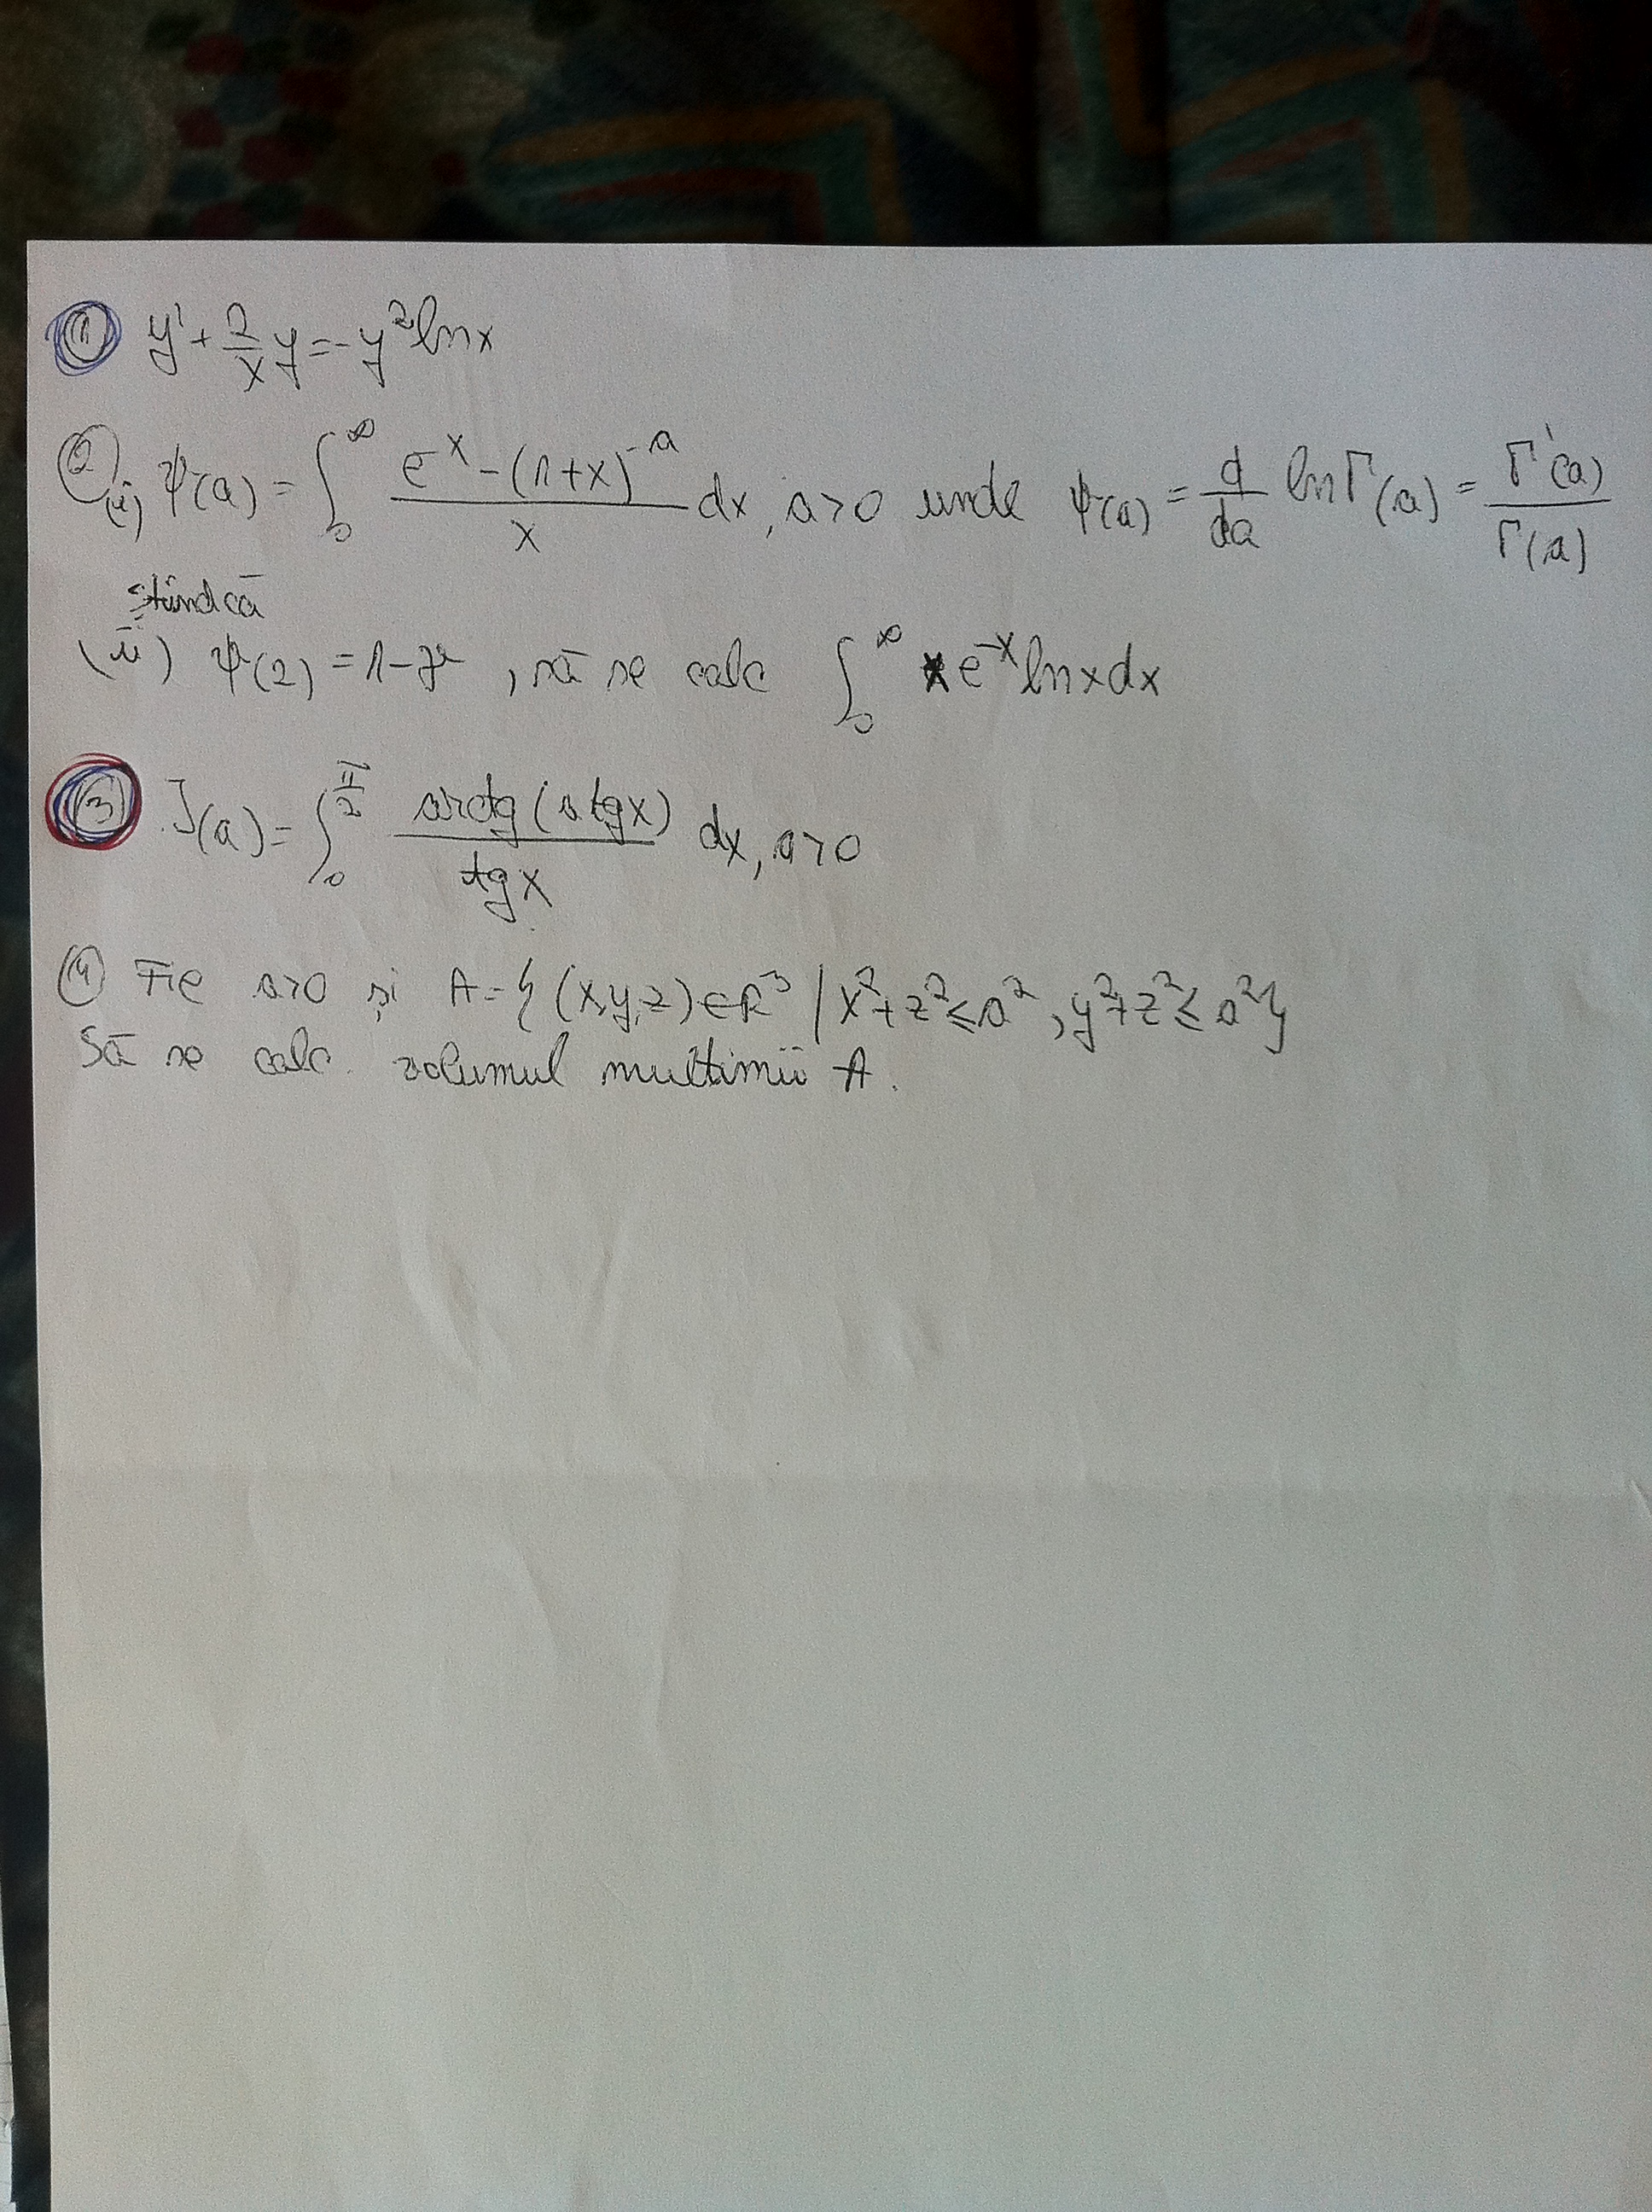 ① y' + 2/x y = -y² ln x
② (i) ψ(a) = ∫₀^∞ (e^-x - (1+x)^-a)/x dx, a>0 unde ψ(a) = d/da ln Γ(a) = Γ'(a)/Γ(a)
Știind că
(ii) ψ(2) = 1-γ, să se calc ∫₀^∞ x e^-x ln x dx
③ J(a) = ∫₀^(π/2) arctg(a tg x)/tg x dx, a>0
④ Fie a>0 și A={(x,y,z)∈R³ | x²+z²≤a², y²+z²≤a²}
Să se calc. volumul multimii A.